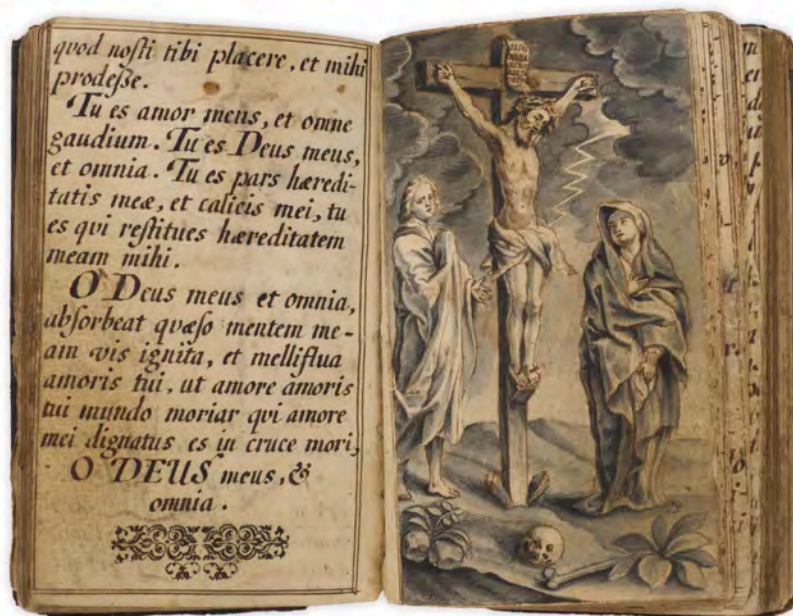 quod noſti tibi placere, et mihi
prodeſſe.
Tu es amor meus, et omne
gaudium. Tu es Deus meus,
et omnia. Tu es pars hæredi-
tatis meæ, et calicis mei, tu
es qui reſtitues hæreditatem
meam mihi.
O Deus meus et omnia,
abſorbeat quæſo mentem me-
am vis ignita, et melliflua
amoris tui, ut amore amoris
tui mundo moriar qui amore
mei dignatus es in cruce mori,
O DEUS meus, &
omnia.